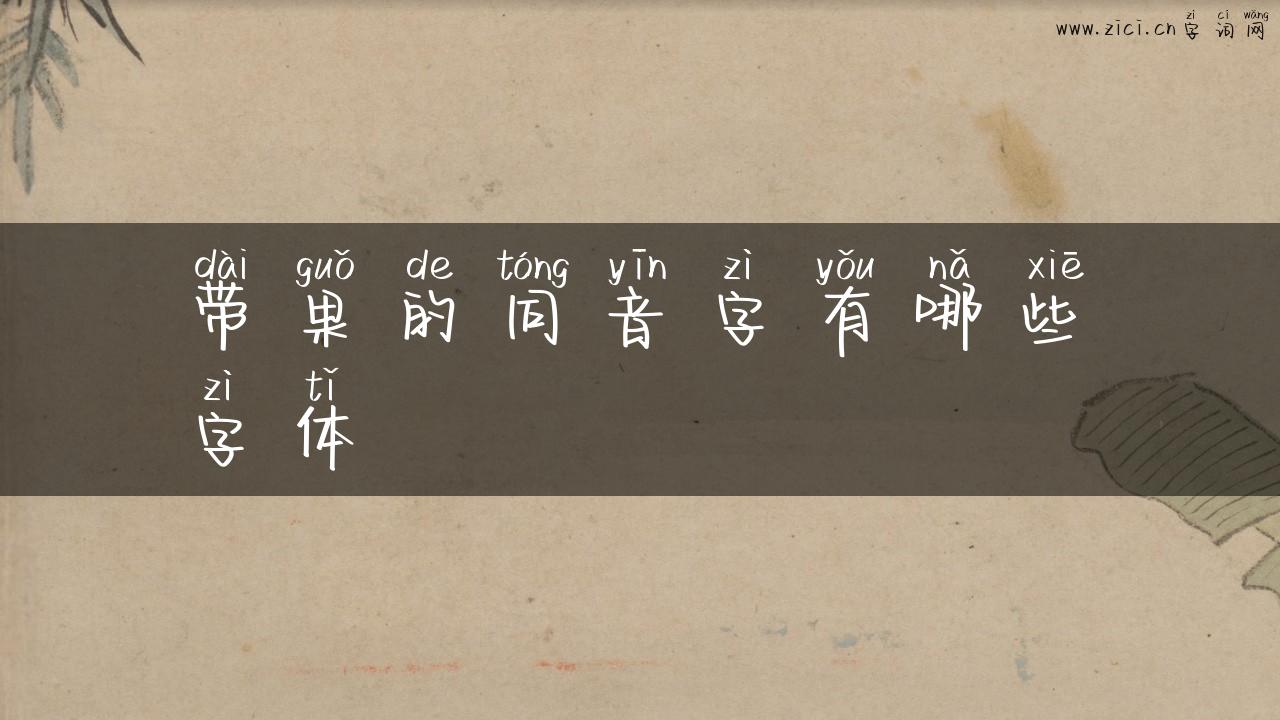 zì cí wǎng
www.zici.cn 字词网
dài guǒ de tóng yīn zì yǒu nǎ xiē
带果的同音字有哪些
zì tǐ
字体